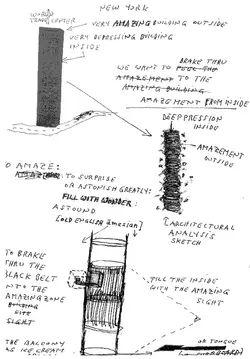 NEW YORK
WORLD
TRADE CENTER
VERY AMAZING BUILDING OUTSIDE
VERY DEPRESSING BUILDING
INSIDE
BRAKE THRU
WE WANT TO
AMAZEMENT TO THE
AMAZING BUILDING
AMAZEMENT FROM INSIDE
DEEPPRESSION
INSIDE
AMAZEMENT
OUTSIDE
TO AMAZE:
TO SURPRISE
OR ASTONISH GREATLY:
FILL WITH WONDER:
ASTOUND
[OLD ENGLISH
ARCHITECTURAL
ANALISIS
SKETCH
TO BRAKE
THRU THE
BLACK BELT
INTO THE
AMAZING ZONE
SIGHT
FILL THE INSIDE
WITH THE AMAZING
SIGHT
THE BALCONY
AS ICE CREAM
OR TONGUE